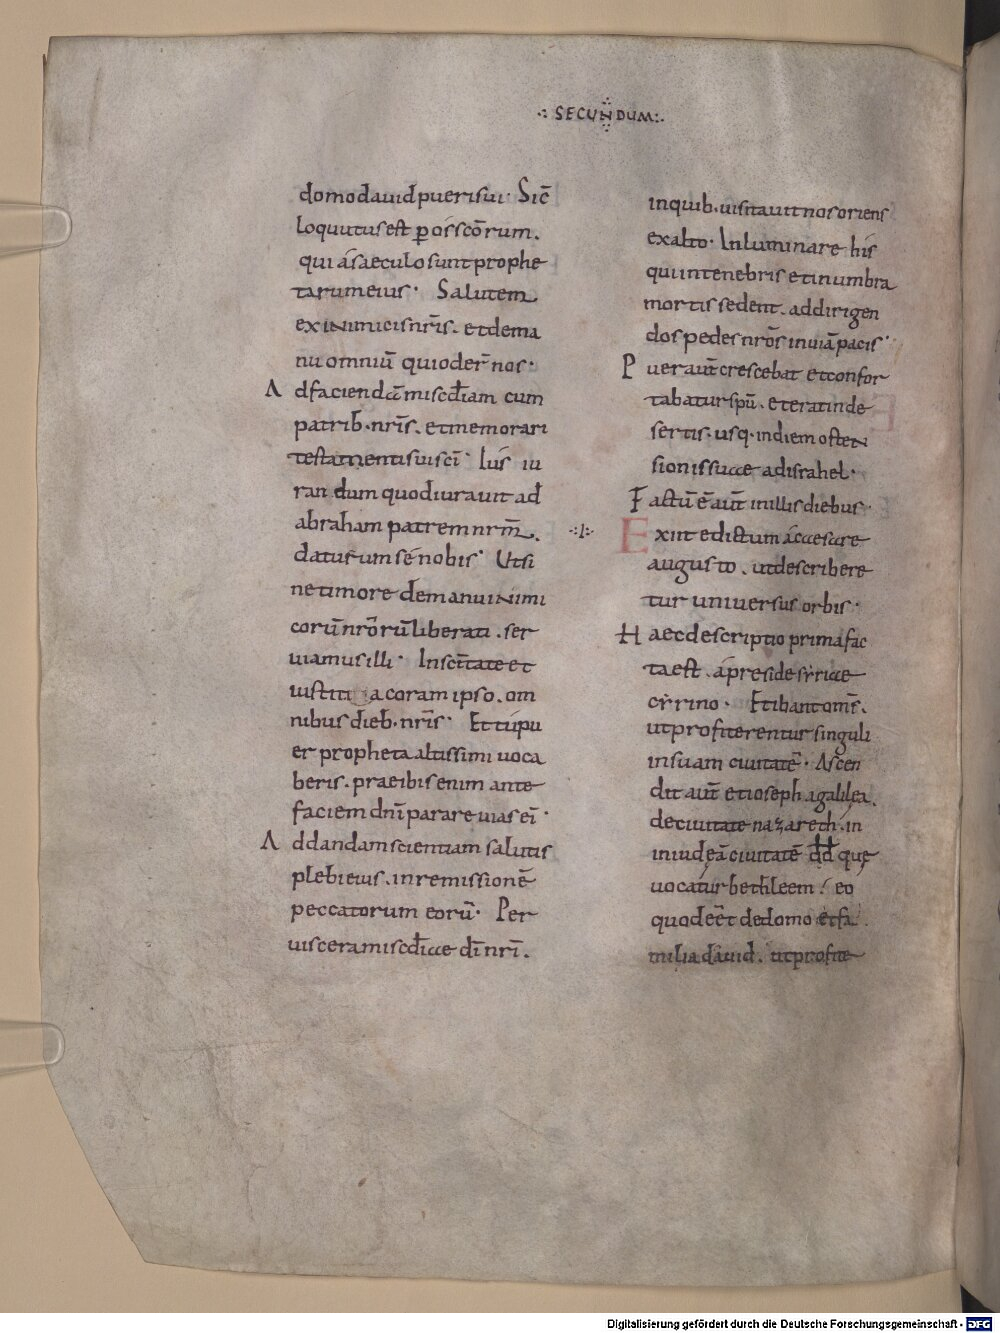 ∴ SECUNDUM ∴
domo dauid pueri sui· Sic̄
loquutus est ꝑ os sc̄orum.
qui á saeculo sunt prophe
tarum eius· Salutem
ex inimicis nr̄is. et de ma
nu omniū qui oder̄ nos·
Ad faciendā misc̄diam cum
patrib· nr̄is. et memorari
testamenti sui sc̄i· Ius iu
randum quod iurauit ad
abraham patrem nrm̄.
daturum sé nobis· Ut si
ne timore de manu inimi
corū nr̄orū liberati. ser
uiamus illi· In sc̄itate et
iustitia coram ipso. om
nibus dieb· nr̄is· Et tú pu
er propheta altissimi uoca
beris. praeibis enim ante
faciem dn̄i parare uias ei·
Ad dandam scientiam salutis
plebi eius. in remissionē
peccatorum eorū· Per
uiscera misc̄diae dī nr̄i.
in quib· uisitauit nos oriens
ex alto· Inluminare his
qui in tenebris et in umbra
mortis sedent. ad dirigen
dos pedes nr̄os in uiā pacis·
Puer aut̄ crescebat et confor
tabatur spū. et erat in de
sertis. usq· in diem osten
sionis suae ad israhel·
Factū ē aut̄ in illis diebus·
·I· Exiit edictum á caesare
augusto. ut describere
tur uniuersus orbis·
Haec descriptio prima fac
ta est. á preside syriae
cyrino· Et ibant om̄s.
ut profiterentur singuli
in suam ciuitatē· Ascen
dit aut̄ et ioseph a galilea.
de ciuitate nazareth. in
in iudęā ciuitatē dd̄ quę
uocatur bethleem. eo
quod eēt de domo et fa
milia dauid. ut profite
Digitalisierung gefördert durch die Deutsche Forschungsgemeinschaft - DFG